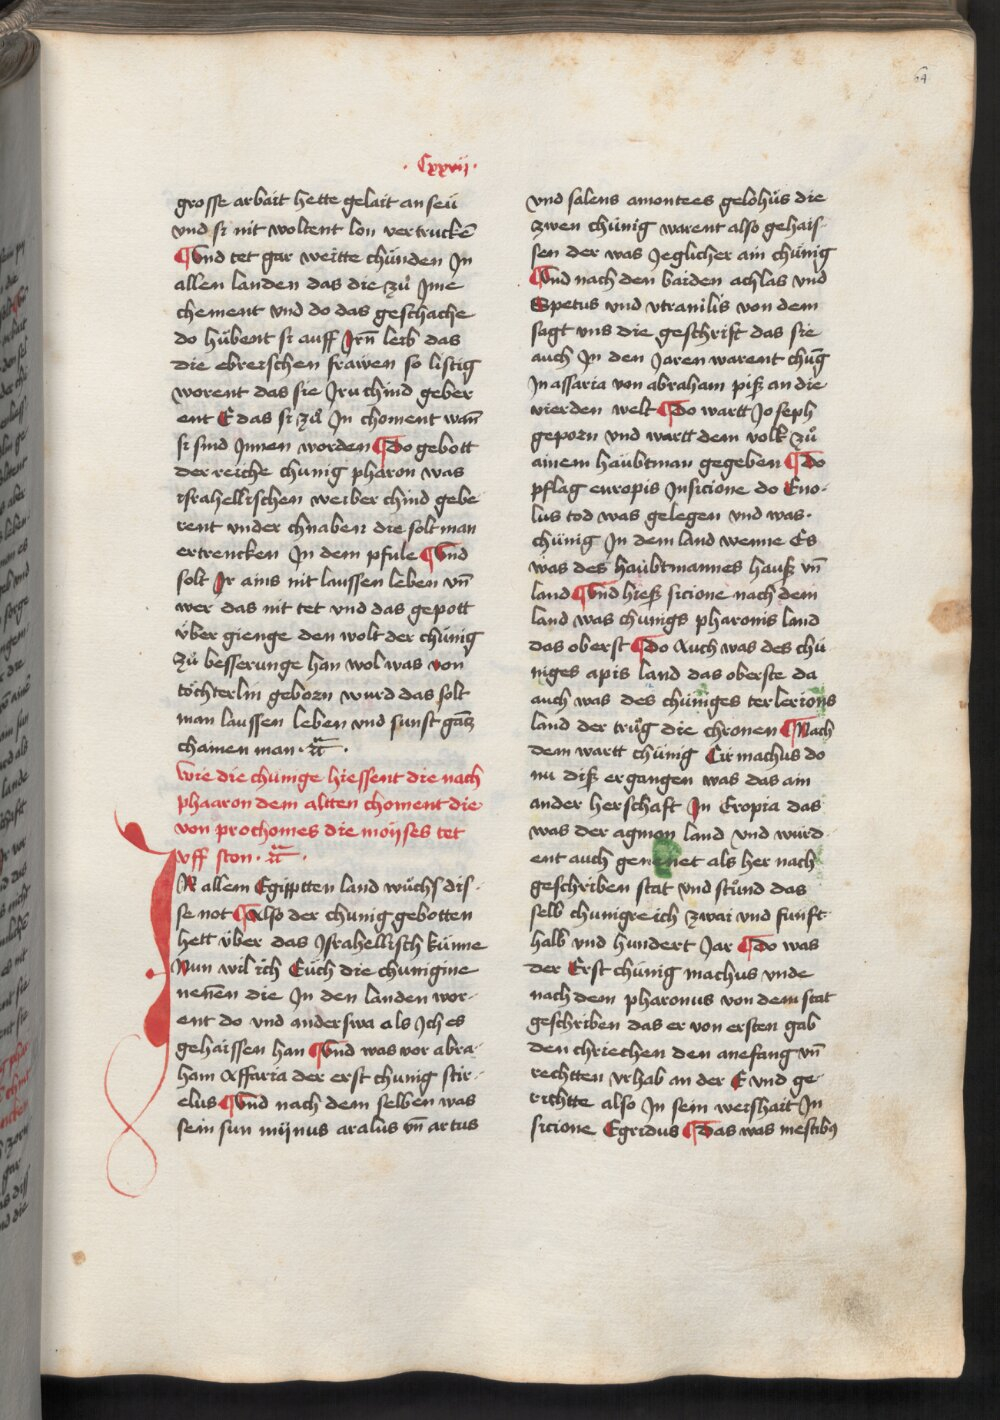 64
· Cxxvij ·
grosse arbait hette gelait an seü
vnd si nit woltent lon vertruckē
Vnd tet gar weitte chünden In
allen landen das die zů Ime
chement vnd do das geschache
do hübent si auff Irn̄ leib das
die ebreischen frawen so listig
worent das sie Iru chind geber
ent E das si zů In choment wan̄
si sind Innen worden Do gebott
der reiche chünig pharon was
israhellischen weiber chind gebe
rent vnder chnaben die solt man
ertrencken In dem pfule Vnd
solt Ir ains nit laussen leben vn̄
wer das nit tet vnd das gepott
über gienge den wolt der chünig
zů besserunge han wol was von
töchterlin geborn wurd das solt
man laussen leben vnd sunst gantz
chainen man ·
wie die chunge hiessent die nach
phaaron dem altten choment die
von prochomes die moyses tet
vff ston ·
IN allem Egipptten land wůchs dis-
se not Also der chunig gebotten
hett über das Israhellisch künne
Nun wil ich Eüch die chunigine
nenēn die In den landen wor-
ent do vnd anderswa als Ich es
gehaissen han Vnd was vor abra-
ham Assaria der erst chunig stir-
elus Vnd nach dem selben was
sein sun mijnus aralus vn̄ artus
vnd salens amontees gelohüs die
zwen chünig warent also gehais-
sen der was Jeglicher ain chünig
Vnd nach den baiden achlas vnd
Spetus vnd vtranilis von dem
sagt vns die geschrift das sie
auch In den Jaren warent chüng
In assaria von abraham piß an die
vierden welt Do wartt Joseph
geporn vnd wartt dem volk zů
ainem haübtman gegeben Do
pflag europis Insicione do Eno-
lus tod was gelegen vnd was
chünig In dem land wenne Es
was des haübtmannes hauß vn̄
land Vnd hieß sicione nach dem
land was chunigs pharonis land
das oberst Do Auch was des chü
niges apis land das oberste da
auch was des chüniges terlerions
land der trůg die chronen Nach
dem wartt chünig Cirmachus do
nu diß ergangen was das ain
ander herschaft In Eropia das
was der agmon land vnd würd
ent auch genenet als her nach
geschriben stat vnd stůnd das
selb chunigreich zwai vnd funft
halb vnd hundert Jar Do was
der Erst chünig machus vnde
nach dem pharonus von dem stat
geschriben das er von ersten gab
den chriechen den anefang vn̄
rechtten vrhab an der E vnd ge-
richtte also In sein weishait In
sicione Egridus Das was mestibus